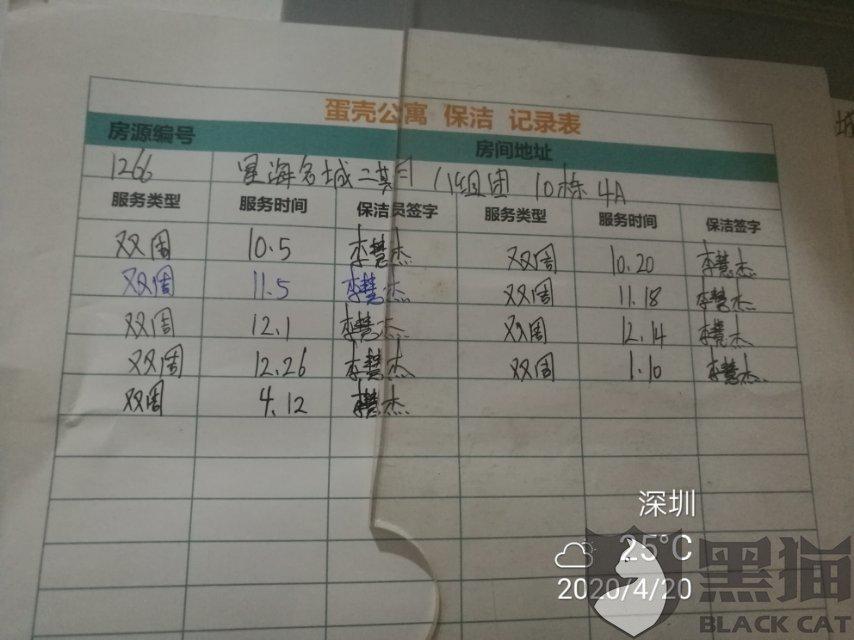 蛋壳公寓 保洁 记录表
房源编号 房间地址
1266 星海名城二期 11组团 10栋 4A
服务类型 服务时间 保洁员签字 服务类型 服务时间 保洁签字
双周 10.5 李慧杰 双周 10.20 李慧杰
双周 11.5 李慧杰 双周 11.18 李慧杰
双周 12.1 李慧杰 双周 12.14 李慧杰
双周 12.26 李慧杰 双周 1.10 李慧杰
双周 4.12 李慧杰
深圳
25°C
2020/4/20
黑猫
BLACK CAT